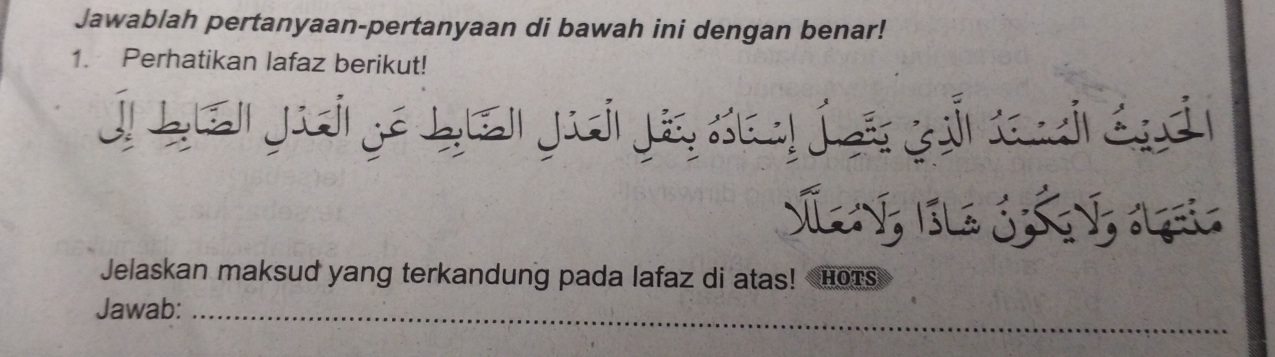 Jawablah pertanyaan-pertanyaan di bawah ini dengan benar!
1. Perhatikan lafaz berikut!
الْحَدِيْثُ الْمُسْنَدُ الَّذِيْ يَتَّصِلُ إِسْنَادُهُ بِنَقْلِ الْعَدْلِ الضَّابِطِ عَنِ الْعَدْلِ الضَّابِطِ إِلَى
مَنْتَهَاهُ وَلَا يَكُوْنُ شَاذًا وَلَا مُعَلَّلًا
Jelaskan maksud yang terkandung pada lafaz di atas! HOTS
Jawab: ........................................................................